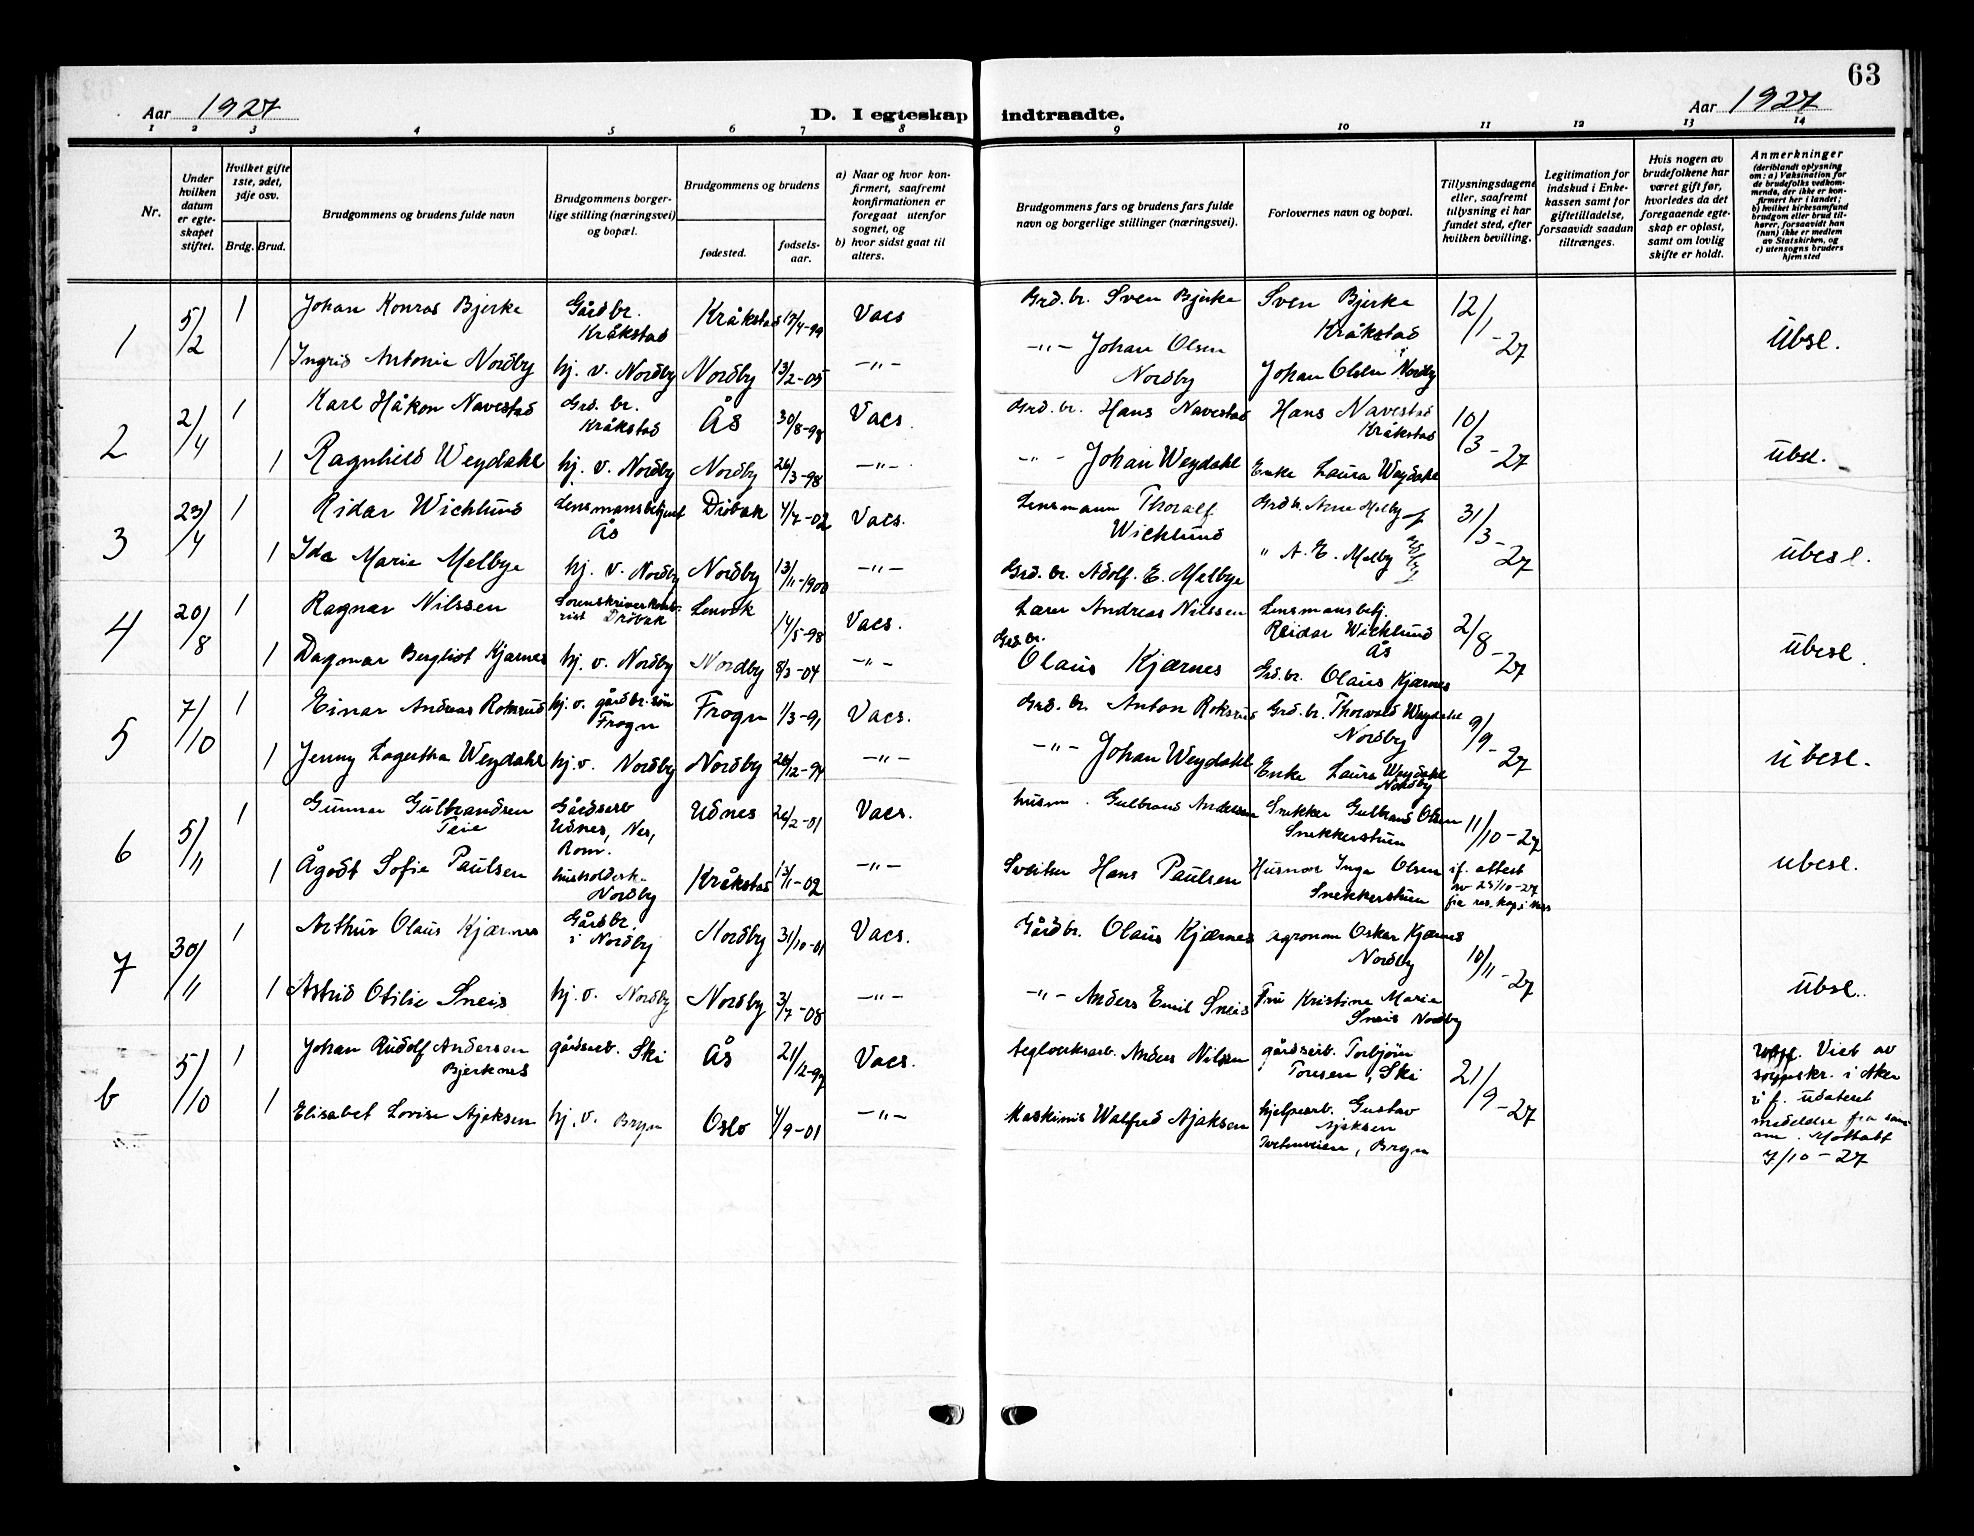 63
Aar 1927
D. I egteskap indtraadte.
Aar 1927
1 2 3 4 5 6 7 8 9 10 11 12 13 14
Nr.
Under hvilken datum er egteskapet stiftet.
Hvilket gifte 1ste, 2det, 3dje osv.
Brdg. Brud.
Brudgommens og brudens fulde navn
Brudgommens borgerlige stilling (næringsvei) og bopæl.
Brudgommens og brudens
fødested.
fødselsaar.
a) Naar og hvor konfirmert, saafremt konfirmationen er foregaat utenfor sognet, og
b) hvor sidst gaat til alters.
Brudgommens fars og brudens fars fulde navn og borgerlige stillinger (næringsvei).
Forlovernes navn og bopæl.
Tillysningsdagene eller, saafremt tillysning ei har fundet sted, efter hvilken bevilling.
Legitimation for indskud i Enkekassen samt for giftetilladelse, forsaavidt saadan tiltrænges.
Hvis nogen av brudefolkene har været gift før, hvorledes da det foregaaende egteskap er opløst, samt om lovlig skifte er holdt.
Anmerkninger
(deriblandt oplysning om: a) Vaksination for de brudefolks vedkommende, der ikke er konfirmert her i landet; b) hvilket kirkesamfund brudgom eller brud tilhører, forsaavidt han (hun) ikke er medlem av Statskirken, og c) utensogns bruders hjemsted
1 5/2 1 Johan Konrad Bjerke Gårdbr. Kråkstad Kråkstad 17/4-99 Vacs Grd. br. Sven Bjerke Sven Bjerke Kråkstad 12/1-27 Ubsl.
1 Ingrid Antonie Nordby hj. v. Nordby Nordby 13/2-05 -"- -"- Johan Olsen Nordby Johan Olsen Nordby
2 2/4 1 Karl Håkon Navestad Grd. br. Kråkstad Ås 30/8-98 Vacs. Grd. br. Hans Navestad Hans Navestad Kråkstad 10/3-27 ubsl.
1 Ragnhild Weydahl hj. v. Nordby Nordby 26/3-98 -"- -"- Johan Weydahl Enke Laura Weydahl
3 23/4 1 Ridar Wichlund Lensmansbetjent Ås Drøbak 4/7-02 Vacs. Lensmann Thoralf Wichlund Grd br. Arne Melby 31/3-27 ubesl.
1 Ida Marie Melbye hj. v. Nordby Nordby 13/11-1900 -"- Grd. br. Adolf. E. Melbye " A. E. Melby Nordby
4 20/8 1 Ragnar Nilssen Sorenskriverkontorist Drøbak Lenvik 14/5-98 Vacs. Lærer Andreas Nilssen Lensmansbetj. Reidar Wichlund Ås 2/8-27 ubesl.
1 Dagmar Bergliot Kjærnes hj. v. Nordby Nordby 8/3-04 -"- Grd. br. Olaus Kjærnes Grd. br. Olaus Kjærnes
5 7/10 1 Einar Andreas Roksrud hj. v. gårdbr. søn Frogn Frogn 1/3-91 Vacs. Grd. br. Anton Roksrud Grd. br. Thorvald Weydahl Nordby 9/9-27 ubesl.
1 Jenny Lagertha Weydahl hj. v. Nordby Nordby 26/12-94 -"- -"- Johan Weydahl Enke Laura Weydahl Nordby
6 5/11 1 Gunnar Gulbrandsen Teie Gårdsarb Udnes, Nes, Rom. Udnes 26/2-01 Vacs. husm. Gulbrand Andersen Snekker Gulbrand Olsen Snekkerstuen 11/10-27 ubesl.
1 Ågodt Sofie Paulsen husholdersk. Nordby Kråkstad 13/11-02 -"- Sveitser Hans Paulsen Husmor Inga Olsen Snekkerstuen if. attest av 25/10-27 fra res. kap. i Nes
7 30/11 1 Arthur Olaus Kjærnes Gårdbr. i Nordby Nordby 31/10-01 Vacs. Gårdbr. Olaus Kjærnes agronom Oskar Kjærnes Nordby 10/11-27 Ubsl.
1 Astrid Otilie Sneis hj. v. Nordby Nordby 3/7-08 -"- -"- Anders Emil Sneis Fru Kristine Marie Sneis Nordby
b 5/10 1 Johan Rudolf Andersen Bjerknes gårdsarb. Ski Ås 21/12-97 Vacs. teglverksarb. Anders Nilsen gårdsarb. Torbjørn Tonsen, Ski 21/9-27 Viet av sognskr. i Aker if. udateret meddelse fra samme. Mottatt 7/10-27
1 Elisabet Lovise Ajaksen hj. v. Bryn Oslo 4/9-01 -"- Maskinis Walfred Ajaksen hjelpearb. Gustav Ajaksen Tvetenveien, Bryn